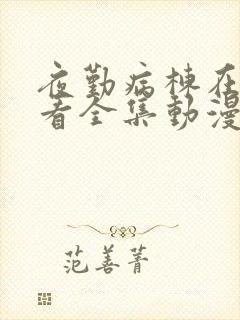 夜勤病棟在
看全集動漫
范善菁